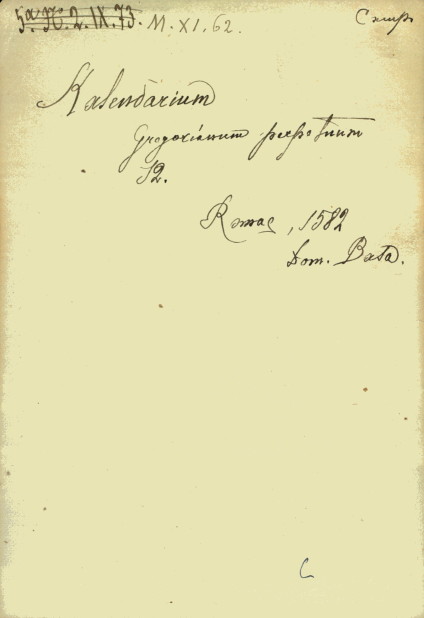 5.a N. 2. IX. 73. M. XI. 62.
Kalendarium
Gregorianum perpetuum
12.
Romae, 1582
Dom. Basa.